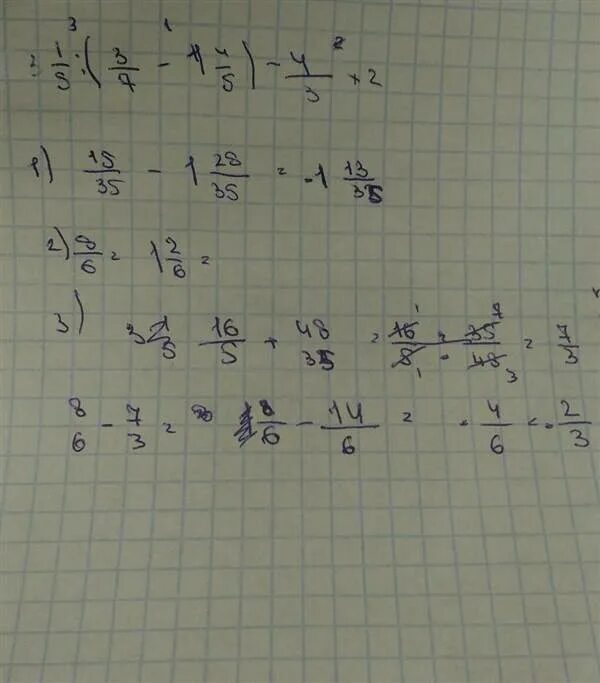 3 1/5 : ( 3/7 - 1 4/5 ) - 4/3 + 2
1) 15/35 - 1 28/35 = -1 13/35
2) 8/6 = 1 2/6 =
3) 3 1/5 16/5 + 48/35 = 16/5 · 35/48 = 7/3
8/6 - 7/3 = 8/6 - 14/6 = - 4/6 = - 2/3